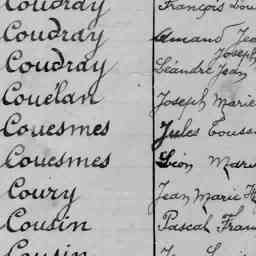 Coudray François
Coudray Amand
Joseph
Coudray Léandre Jean
Couëlan Joseph Marie
Couesmes Jules
Couesmes Léon
Coury Jean Marie
Cousin Pascal
Cousin